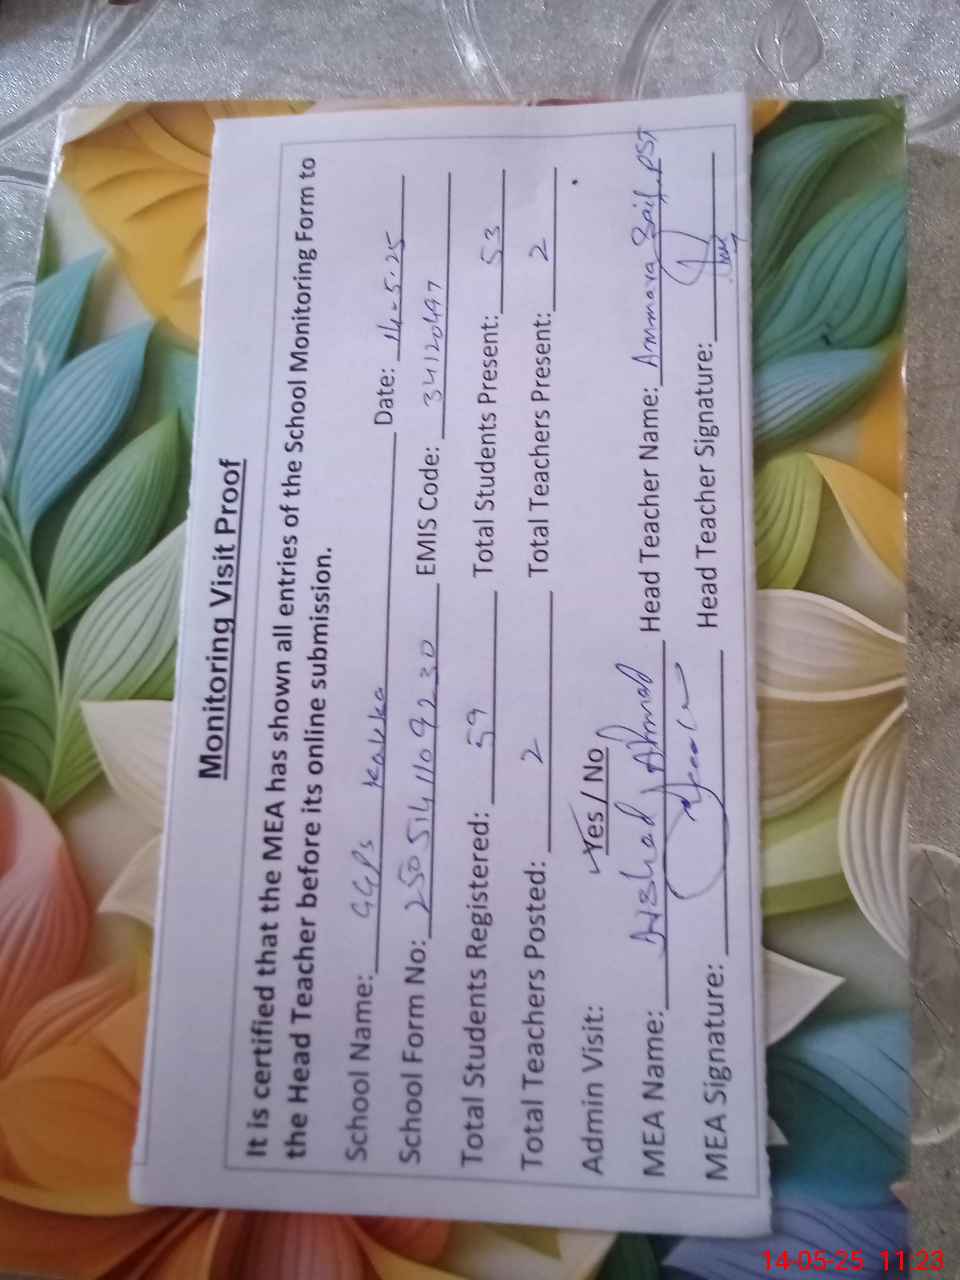 Monitoring Visit Proof
It is certified that the MEA has shown all entries of the School Monitoring Form to
the Head Teacher before its online submission.
School Name: GGPS Kakka Date: 14-5-25
School Form No: 2505141109230 EMIS Code: 34120497
Total Students Registered: 59 Total Students Present: 53
Total Teachers Posted: 2 Total Teachers Present: 2
Admin Visit: Yes / No
MEA Name: Arshad Ahmad Head Teacher Name: Ammara Saif PST
MEA Signature: Head Teacher Signature:
14-05-25 11:23